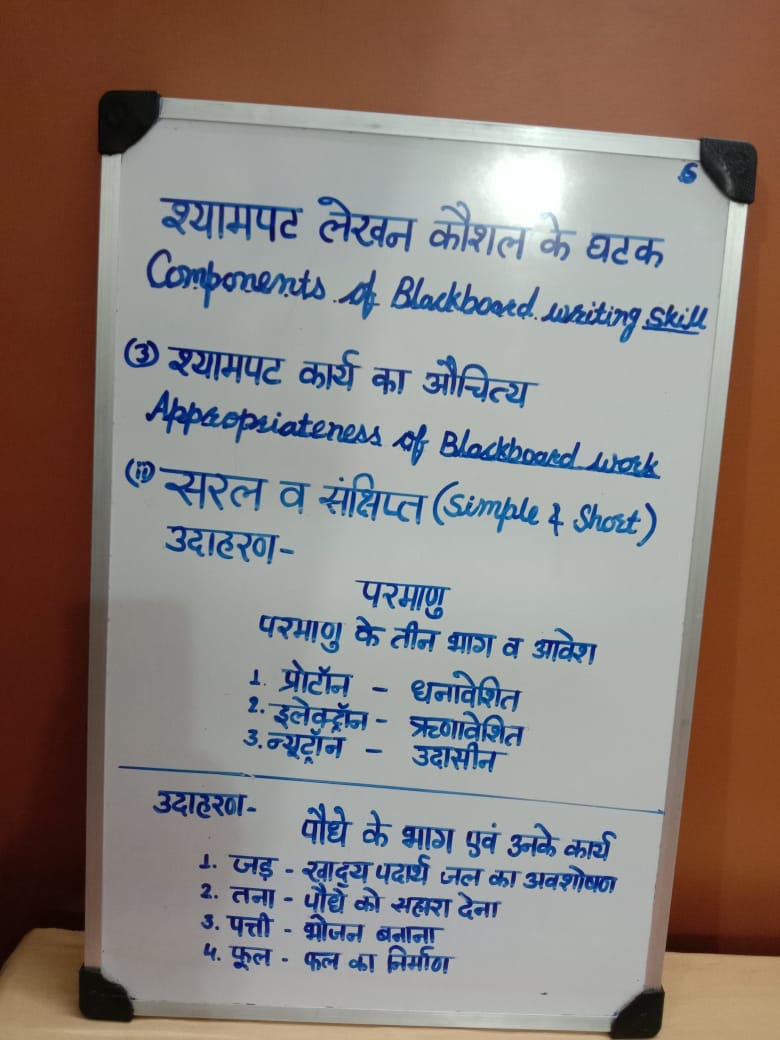 6
श्यामपट लेखन कौशल के घटक
Components of Blackboard writing skill
(3) श्यामपट कार्य का औचित्य
Appropriateness of Blackboard work
(ii) सरल व संक्षिप्त (Simple & Short)
उदाहरण-
परमाणु
परमाणु के तीन भाग व आवेश
1. प्रोटॉन - धनावेशित
2. इलेक्ट्रॉन - ऋणावेशित
3. न्यूट्रॉन - उदासीन
उदाहरण-
पौधे के भाग एवं उनके कार्य
1. जड़ - खाद्य पदार्थ जल का अवशोषण
2. तना - पौधे को सहारा देना
3. पत्ती - भोजन बनाना
4. फूल - फल का निर्माण